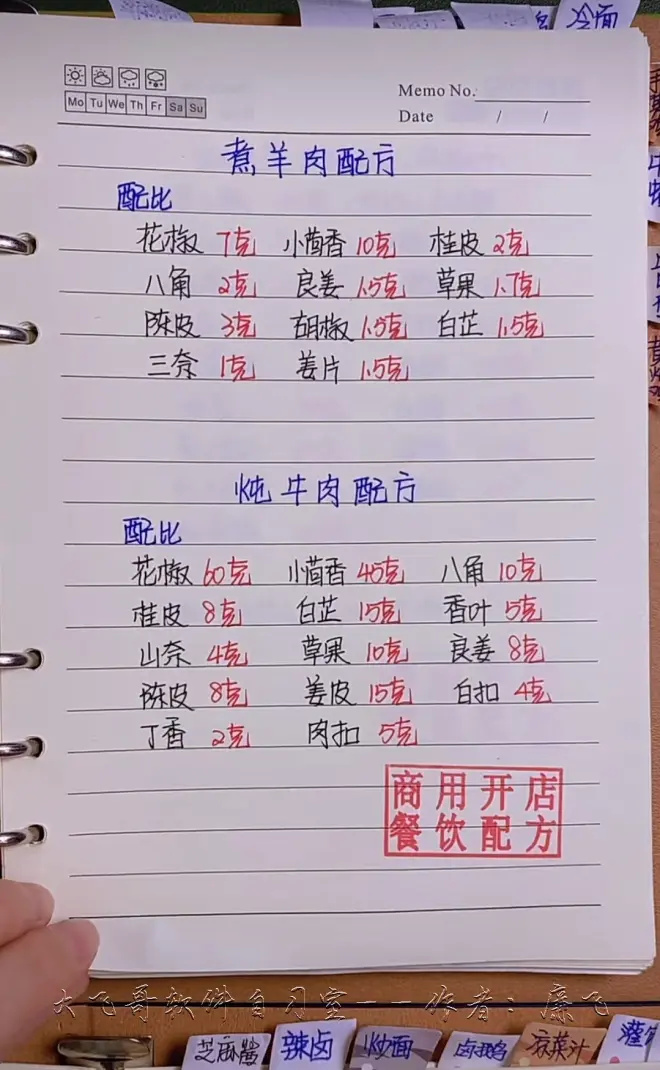 冷面
Memo No.
Mo Tu We Th Fr Sa Su
Date / /
煮羊肉配方
配比
花椒 7克 小茴香 10克 桂皮 2克
八角 2克 良姜 1.5克 草果 1.7克
陈皮 3克 胡椒 1.5克 白芷 1.5克
三奈 1克 姜片 1.5克
炖牛肉配方
配比
花椒 60克 小茴香 45克 八角 10克
桂皮 8克 白芷 15克 香叶 5克
山奈 4克 草果 10克 良姜 8克
陈皮 8克 姜皮 15克 白扣 4克
丁香 2克 肉扣 5克
商用开店
餐饮配方
大飞哥软件自习室--作者：廉飞
芝麻酱 辣卤 炒面 卤鹅 凉菜汁 灌